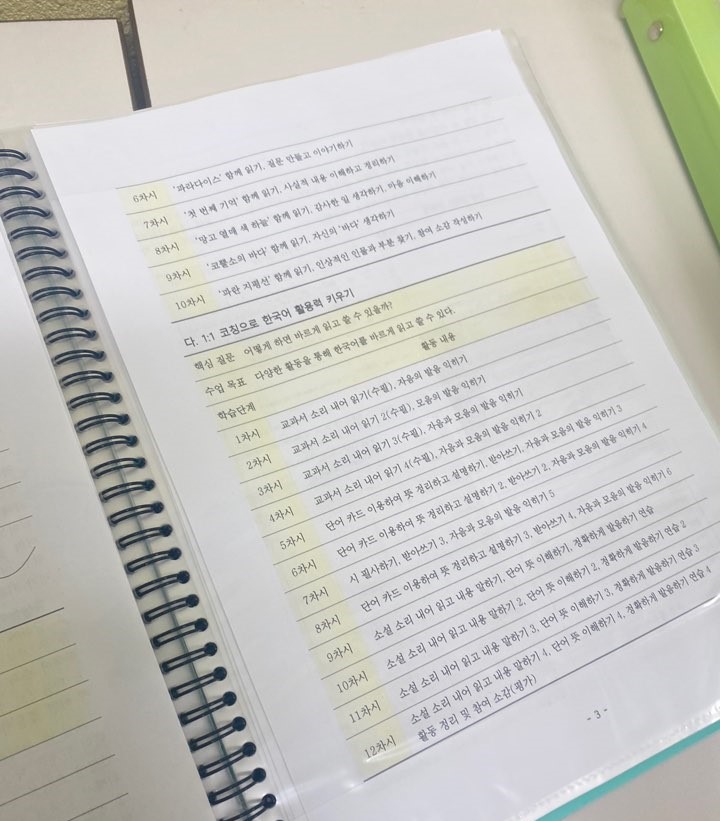 6차시 '파라다이스' 함께 읽기, 질문 만들고 이야기하기
7차시 '첫 번째 기억' 함께 읽기, 사실적 내용 이해하고 정리하기
8차시 '망고 열매 색 하늘' 함께 읽기, 감사한 일 생각하기, 마음 이해하기
9차시 '코뿔소의 바다' 함께 읽기, 자신의 '바다' 생각하기
10차시 '파란 지평선' 함께 읽기, 인상적인 인물과 부분 찾기, 참여 소감 작성하기
다. 1:1 코칭으로 한국어 활용력 키우기
핵심 질문 어떻게 하면 바르게 읽고 쓸 수 있을까?
수업 목표 다양한 활동을 통해 한국어를 바르게 읽고 쓸 수 있다.
학습단계 활동 내용
1차시 교과서 소리 내어 읽기(수필), 자음의 발음 익히기
2차시 교과서 소리 내어 읽기 2(수필), 모음의 발음 익히기
3차시 교과서 소리 내어 읽기 3(수필), 자음과 모음의 발음 익히기
4차시 교과서 소리 내어 읽기 4(수필), 자음과 모음의 발음 익히기 2
5차시 단어 카드 이용하여 뜻 정리하고 설명하기, 받아쓰기, 자음과 모음의 발음 익히기 3
6차시 단어 카드 이용하여 뜻 정리하고 설명하기 2, 받아쓰기 2, 자음과 모음의 발음 익히기 4
7차시 시 필사하기, 받아쓰기 3, 자음과 모음의 발음 익히기 5
8차시 단어 카드 이용하여 뜻 정리하고 설명하기 3, 받아쓰기 4, 자음과 모음의 발음 익히기 6
9차시 소설 소리 내어 읽고 내용 말하기, 단어 뜻 이해하기, 정확하게 발음하기 연습
10차시 소설 소리 내어 읽고 내용 말하기 2, 단어 뜻 이해하기 2, 정확하게 발음하기 연습 2
11차시 소설 소리 내어 읽고 내용 말하기 3, 단어 뜻 이해하기 3, 정확하게 발음하기 연습 3
12차시 소설 소리 내어 읽고 내용 말하기 4, 단어 뜻 이해하기 4, 정확하게 발음하기 연습 4
활동 정리 및 참여 소감(평가)
- 3 -